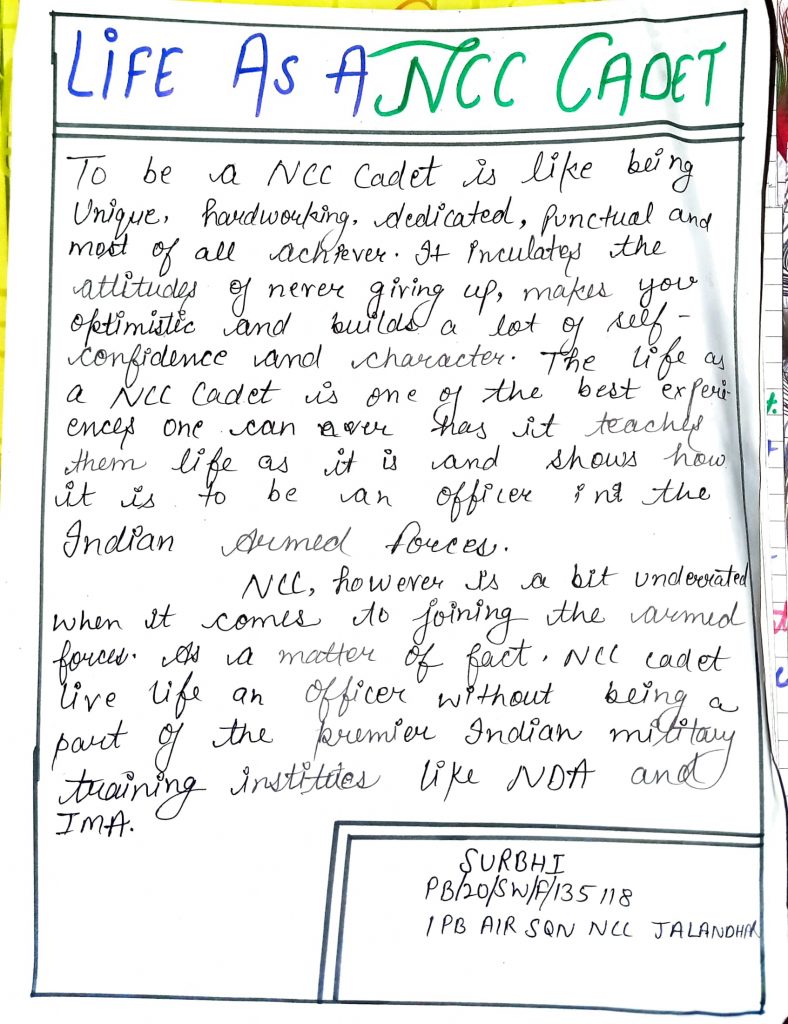 LIFE AS A NCC CADET
To be a NCC Cadet is like being
Unique, hardworking, dedicated, punctual and
most of all achiever. It inculates the
attitudes of never giving up, makes you
optimistic and builds a lot of self-
confidence and character. The life as
a NCC Cadet is one of the best experi-
ences one can ever has it teaches
them life as it is and shows how
it is to be an officer in the
Indian Armed forces.
NCC, however is a bit underrated
when it comes to joining the armed
forces. As a matter of fact. NCC cadet
live life an officer without being a
part of the premier Indian military
training institutes like NDA and
IMA.
SURBHI
PB/20/SW/A/135118
1 PB AIR SQN NCC JALANDHAR